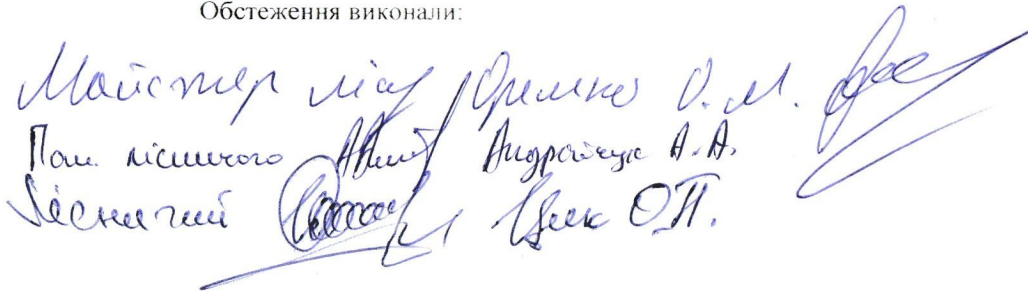 Обстеження виконали:
Майстер лісу О. М.
Пом. лісничого Андрійчук А. А.
Лісничий Цик О.П.